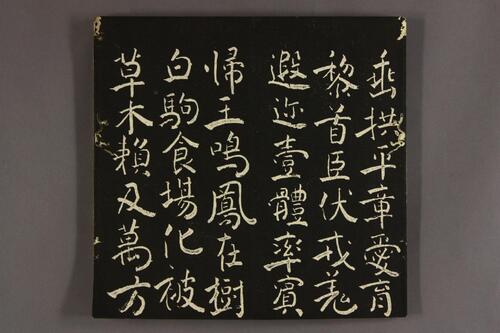 垂拱平章愛育
黎首臣伏戎羌
遐迩壹體率賓
帰王鳴鳳在樹
白駒食場化被
草木賴及萬方